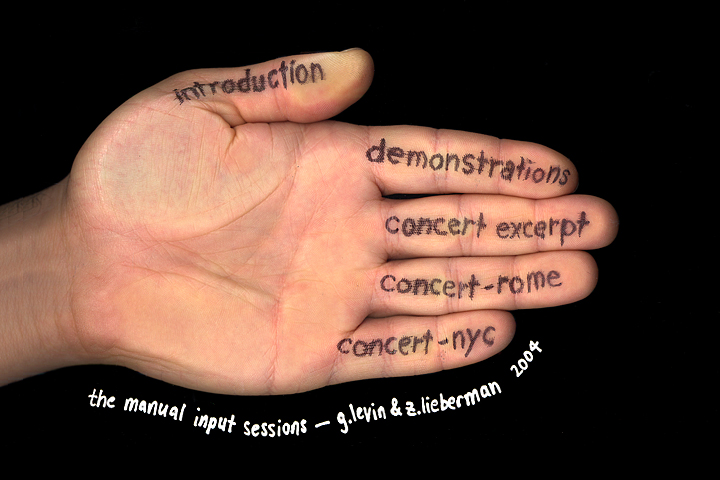 introduction
demonstrations
concert excerpt
concert-rome
concert-nyc
the manual input sessions – g.levin & z.lieberman 2004